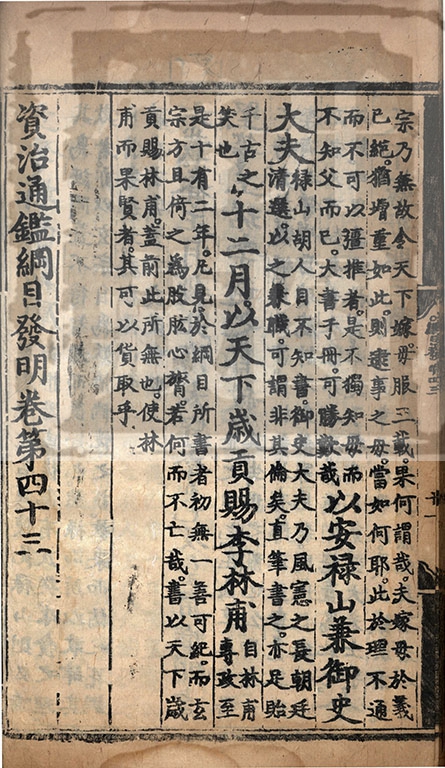 宗乃無故令天下嫁母服三載果何謂哉夫嫁母於義
已絕猶增重如此則逮事之母當如何耶此於理不通
而不可以彊推者是不獨知母而
不知父而已大書于冊可勝歎哉
以安祿山兼御史
大夫
祿山胡人目不知書御史大夫乃風憲之長朝廷
清選以之兼職可謂非其倫矣直筆書之亦足貽
千古之
笑也
十二月以天下歲貢賜李林甫
自林甫
專政至
是十有二年凡見於綱目所書者初無一善可紀而玄
宗方且倚之為股肱心膂若何而不亡哉書以天下歲
貢賜林甫蓋前此所無也使林
甫而果賢者其可以貨取乎
資治通鑑綱目發明卷第四十三